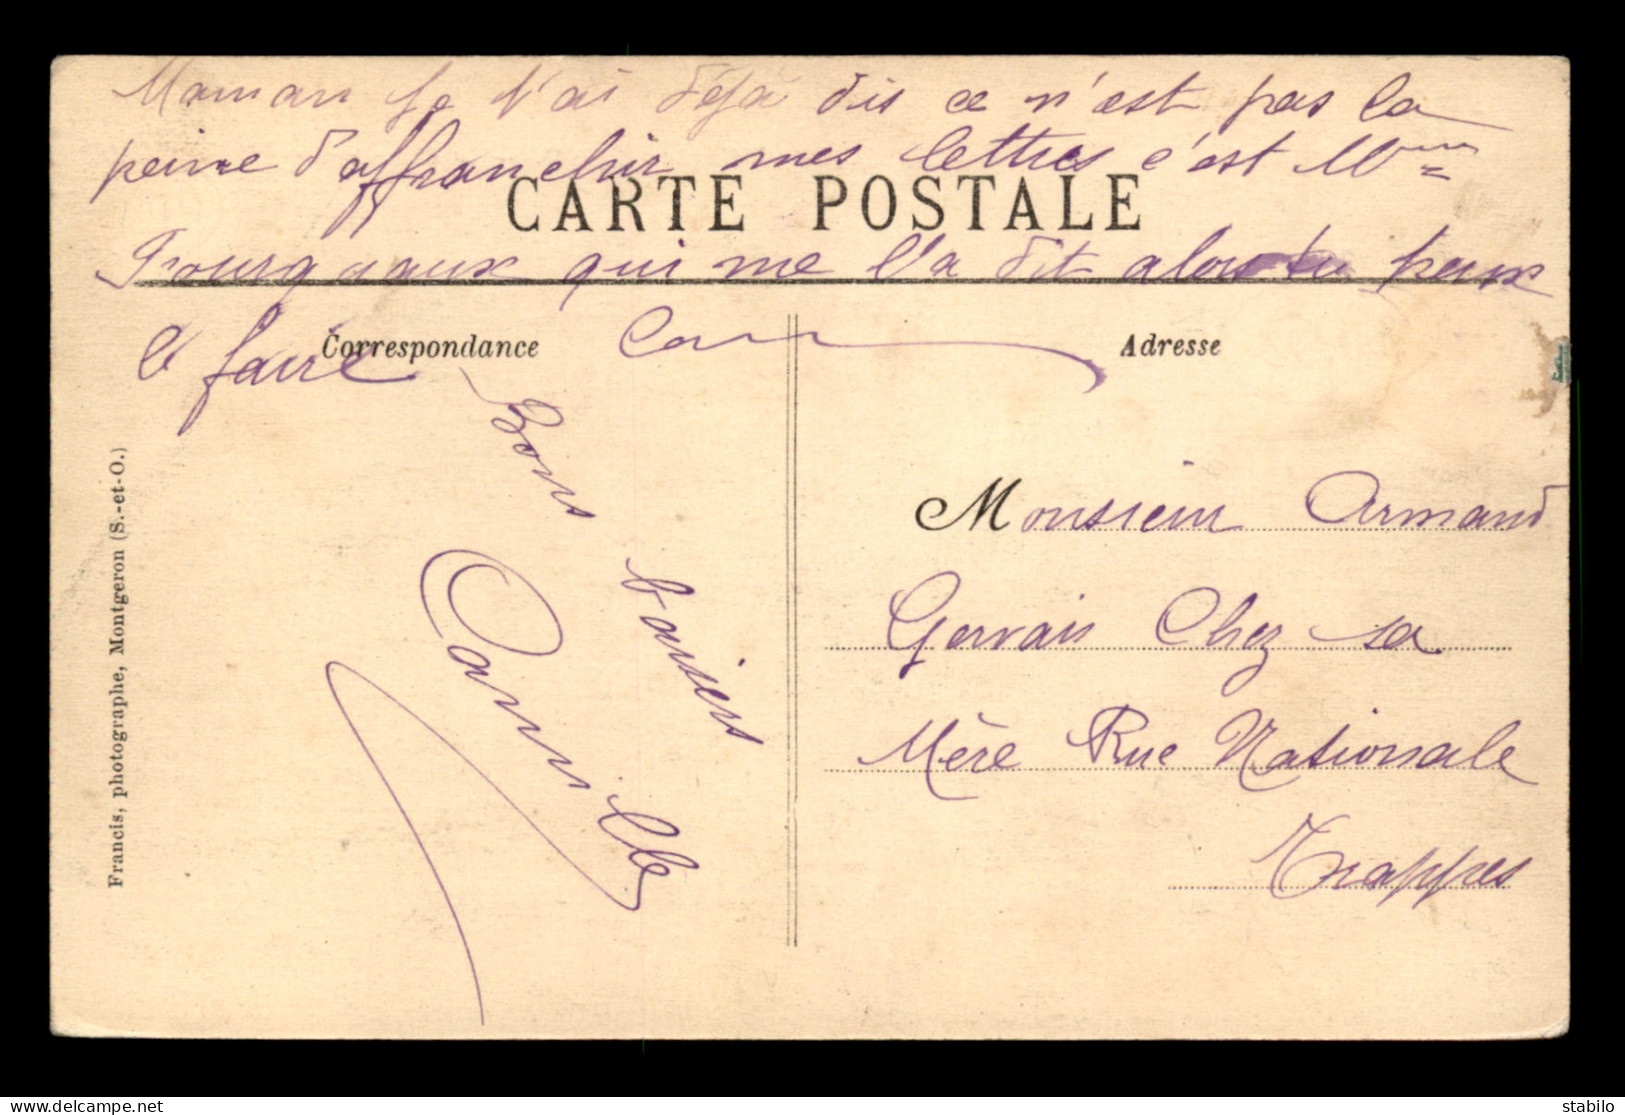 Maman je t'ai déjà dis ce n'est pas la
peine d'affranchir mes lettres c'est Mme
CARTE POSTALE
qui me l'a dit alors tu peux
le faire
Correspondance
Adresse
Bons baisers
Camille
Monsieur Armand
Gervais Chez sa
Mère Rue Nationale
Trappes
Francis, photographe, Montgeron (S.-et-O.)
stabilo